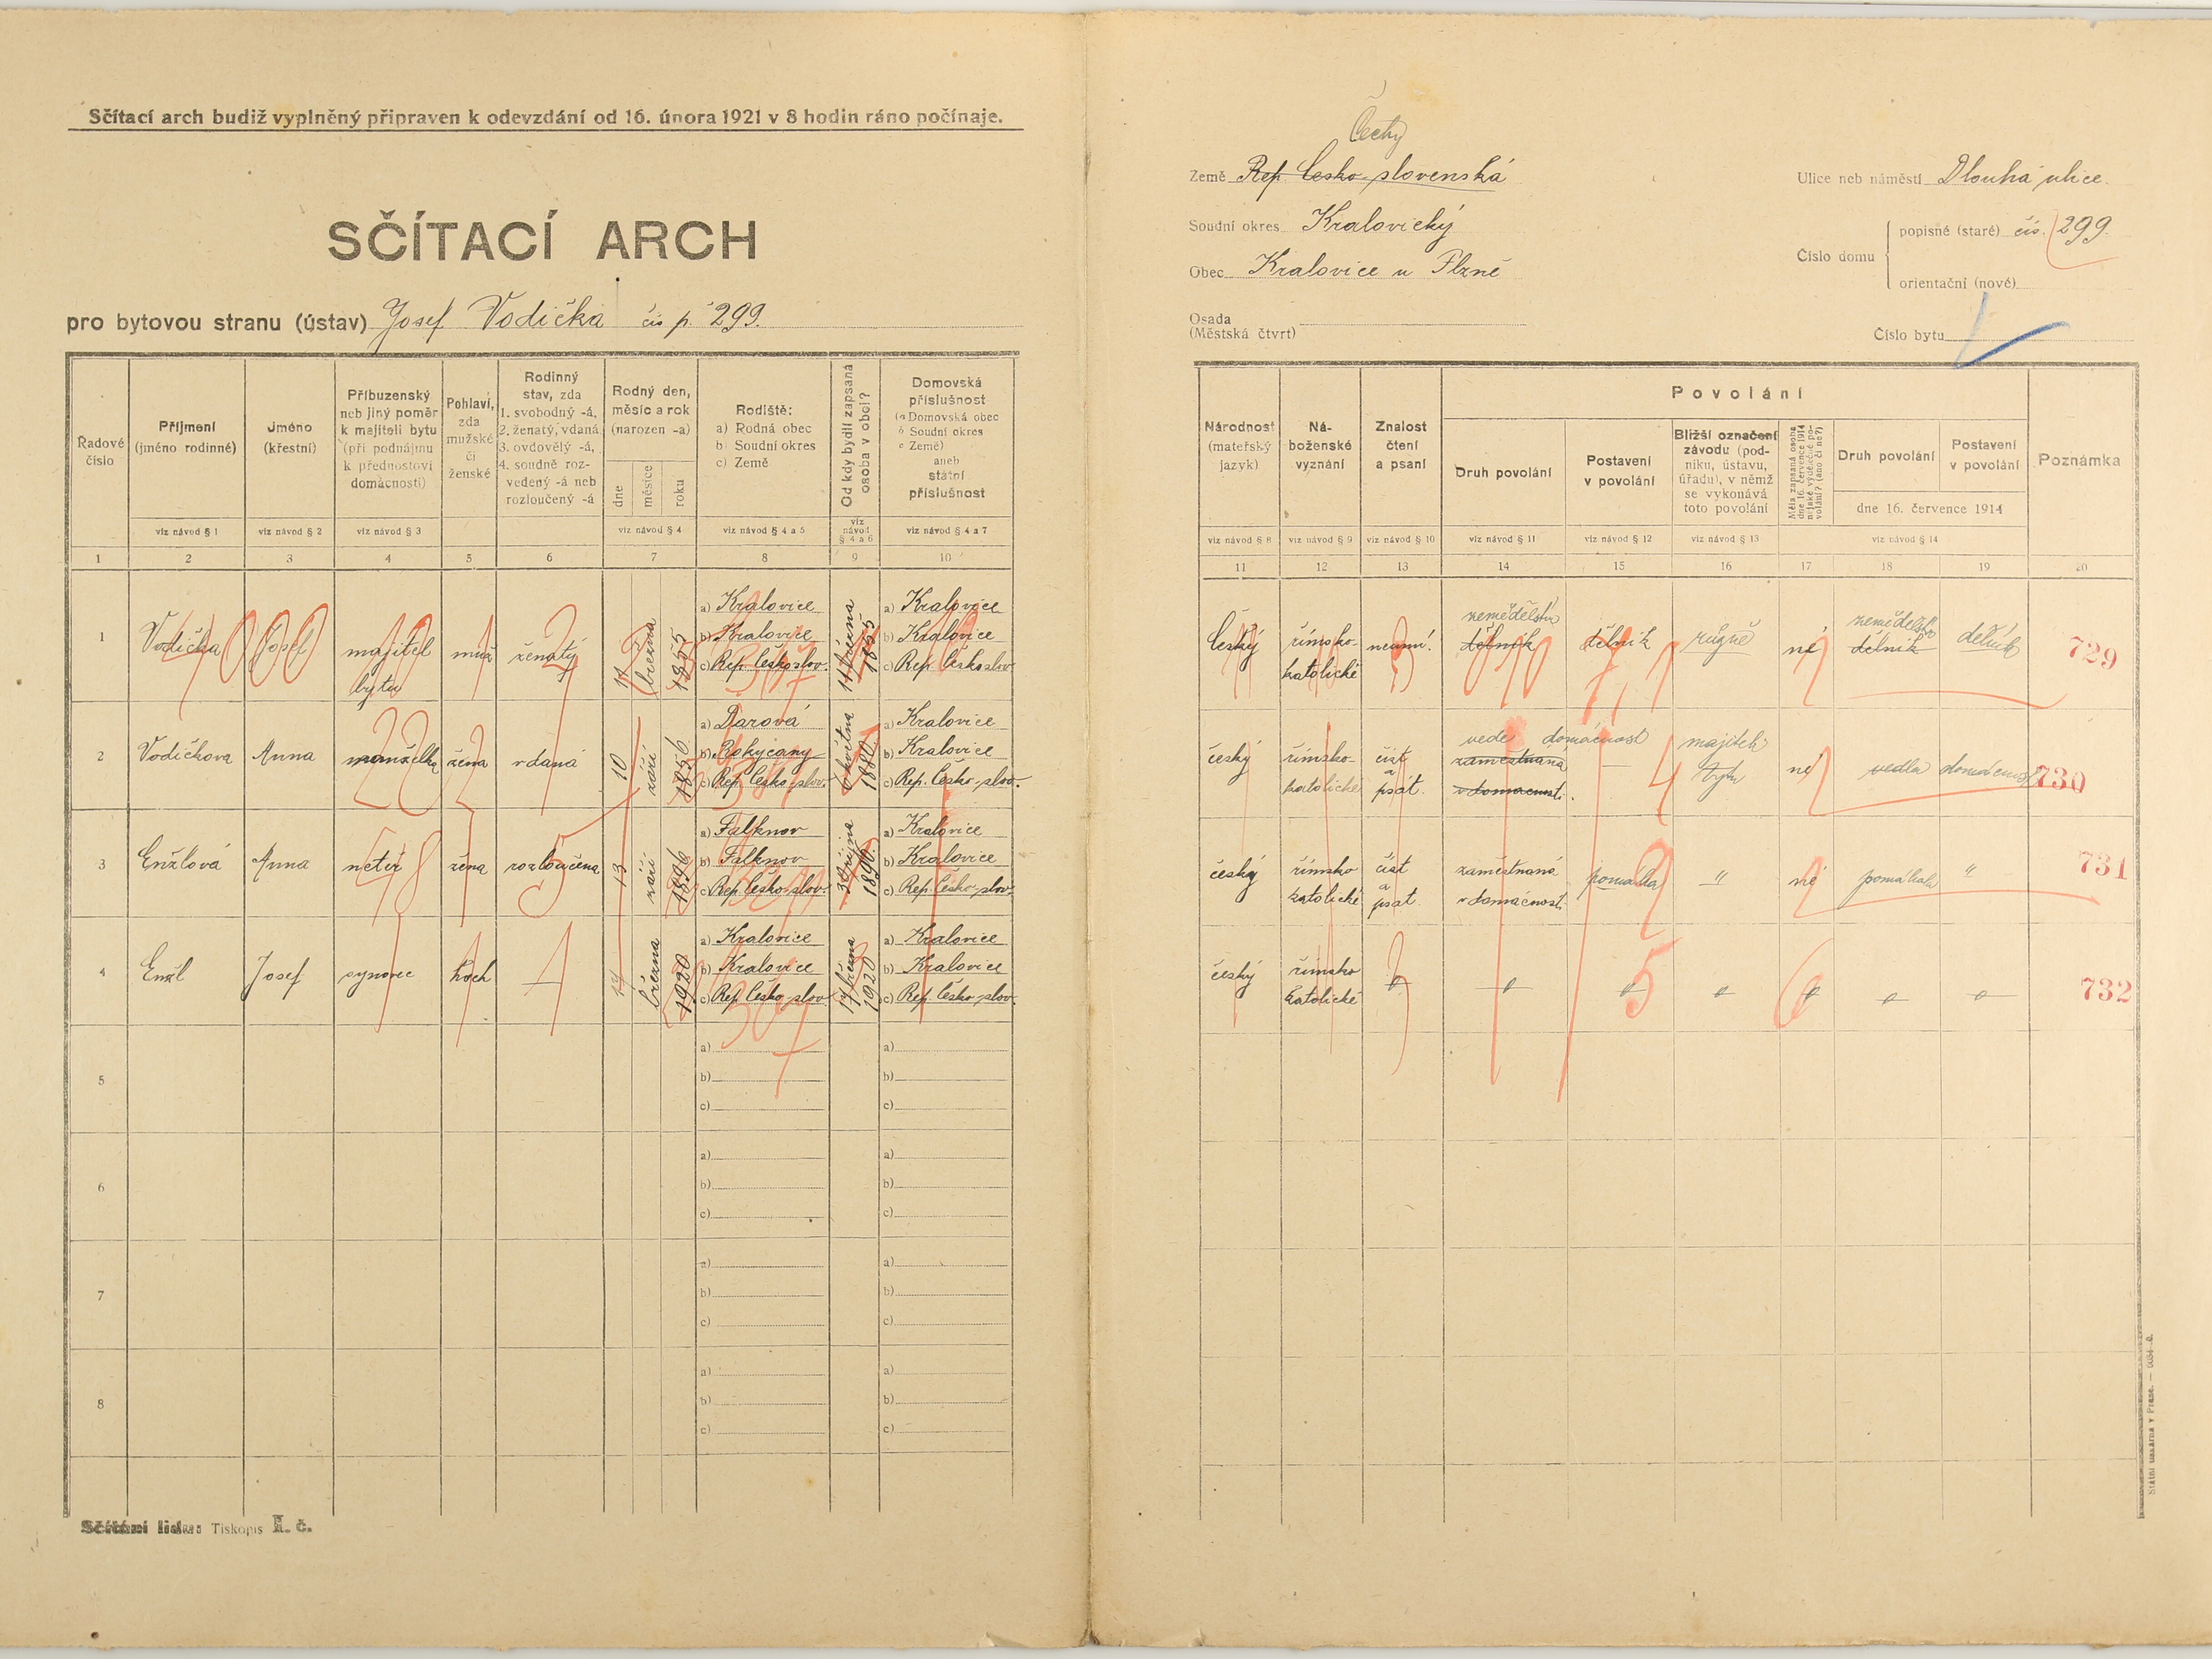 Sčítací arch budiž vyplněný připraven k odevzdání od 16. února 1921 v 8 hodin ráno počínaje.
SČÍTACÍ ARCH
pro bytovou stranu (ústav) Josef Vodička čís p. 299.
Řadové číslo
Příjmení (jméno rodinné)
Jméno (křestní)
Příbuzenský neb jiný poměr k majiteli bytu (při podnájmu k přednostovi domácnosti)
Pohlaví, zda mužské či ženské
Rodinný stav, zda 1. svobodný -á, 2. ženatý, vdaná 3. ovdovělý -á, 4. soudně rozvedený -á neb rozloučený -á
Rodný den, měsíc a rok (narozen -a)
dne měsíce roku
Rodiště: a) Rodná obec b) Soudní okres c) Země
Od kdy bydlí zapsaná osoba v obci?
Domovská příslušnost (a Domovská obec b Soudní okres c Země) aneb státní příslušnost
viz návod § 1 viz návod § 2 viz návod § 3 viz návod § 4 viz návod § 4 a 5 viz návod § 4 a 6 viz návod § 4 a 7
1 2 3 4 5 6 7 8 9 10
1 Vodička Josef majitel bytu muž ženatý března 1855
a) Kralovice
b) Kralovice
c) Rep. Českoslov.
března 1855
a) Kralovice
b) Kralovice
c) Rep. Českoslov.
2 Vodičkova Anna manželka žena vdaná 10 září 1856
a) Darová
b) Rokycany
c) Rep. Česko-slov.
května 1880
a) Kralovice
b) Kralovice
c) Rep. Česko-slov.
3 Enžlová Anna neteř žena rozloučena 13 září 1896
a) Falknov
b) Falknov
c) Rep. Česko-slov.
října 1896.
a) Kralovice
b) Kralovice
c) Rep. Česko-slov.
4 Enžl Josef synovec hoch 14 března 1920
a) Kralovice
b) Kralovice
c) Rep. Česko-slov.
14 března 1920
a) Kralovice
b) Kralovice
c) Rep. Česko-slov.
5 a) b) c) a) b) c)
6 a) b) c) a) b) c)
7 a) b) c) a) b) c)
8 a) b) c) a) b) c)
Tiskopis č.
Čechy
Země Rep. Česko-slovenská
Soudní okres Kralovický
Obec Kralovice u Plzně
Osada (Městská čtvrt)
Ulice neb náměstí Dlouhá ulice.
Číslo domu
popisné (staré) čís. 299.
orientační (nové)
Číslo bytu
Národnost (mateřský jazyk)
Náboženské vyznání
Znalost čtení a psaní
Povolání
Druh povolání
Postavení v povolání
Bližší označení závodu (podniku, ústavu, úřadu), v němž se vykonává toto povolání
Měla zapsaná osoba dne 16. července 1914 nějaké výdělečné povolání? (ano či ne?)
Druh povolání
Postavení v povolání
dne 16. července 1914
Poznámka
viz návod § 8 viz návod § 9 viz návod § 10 viz návod § 11 viz návod § 12 viz návod § 13 viz návod § 14
11 12 13 14 15 16 17 18 19 20
Český římsko-katolické neumí. zemědělství dělník dělník různé né dělník dělník 729
český římsko-katolické číst a psát. vede domácnost zaměstnaná v domácnosti. majiteli bytu né vedla domácnost 730
český římsko katolické číst a psat. zaměstnaná v domácnosti pomáhá " né pomáhala " 731
český římsko katolické 732
Státní tiskárna v Praze.